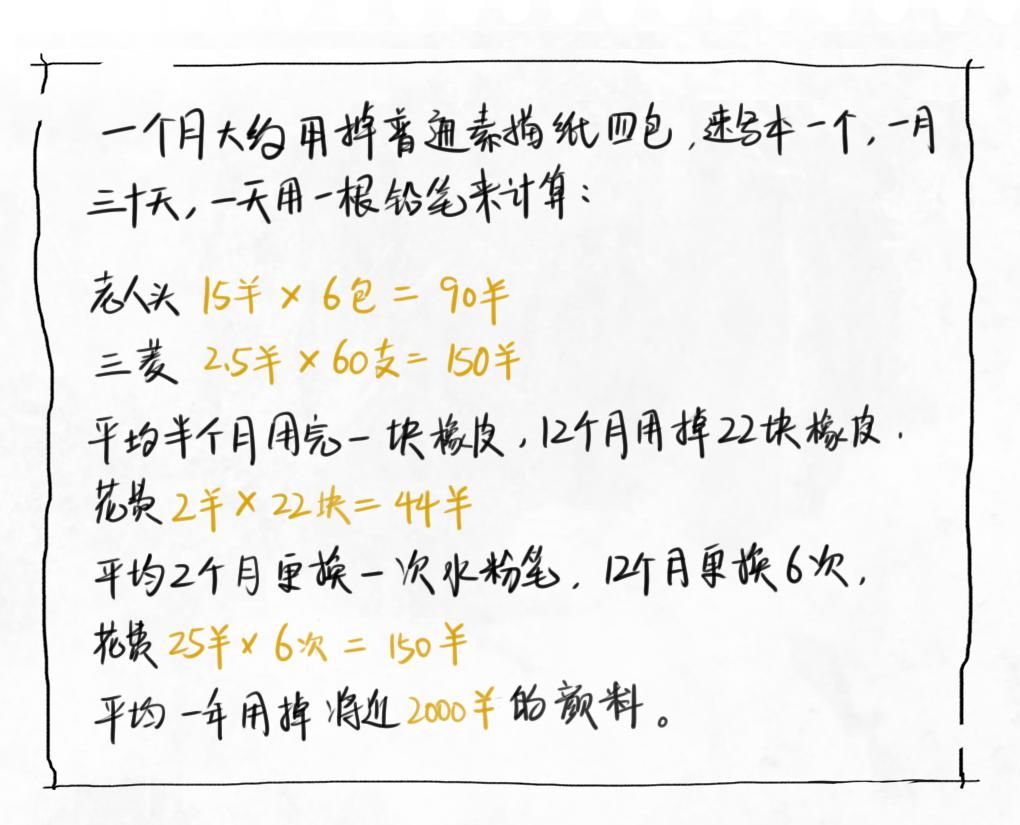 一个月大约用掉普通素描纸四包,速写本一个,一月
三十天,一天用一根铅笔来计算:
老人头 15¥ × 6包 = 90¥
三菱 2.5¥ × 60支 = 150¥
平均半个月用完一块橡皮,12个月用掉22块橡皮.
花费 2¥ × 22块 = 44¥
平均2个月更换一次水粉笔,12个月更换6次,
花费 25¥ × 6次 = 150¥
平均一年用掉将近2000¥的颜料。